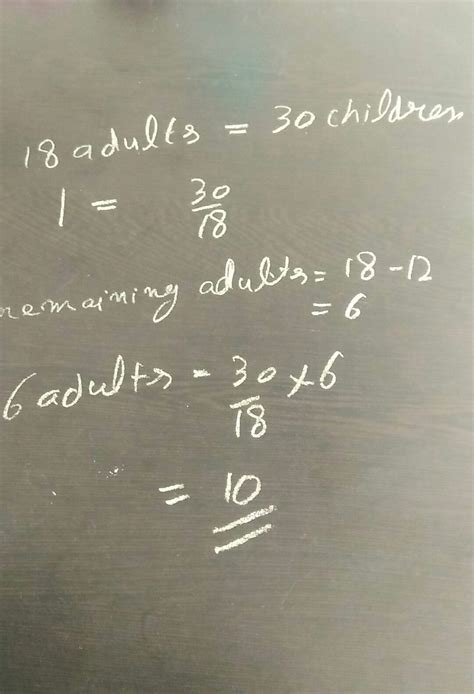 18 adults = 30 children
1 = 30/18
remaining adults = 18 - 12
= 6
6 adults = 30/18 × 6
= 10